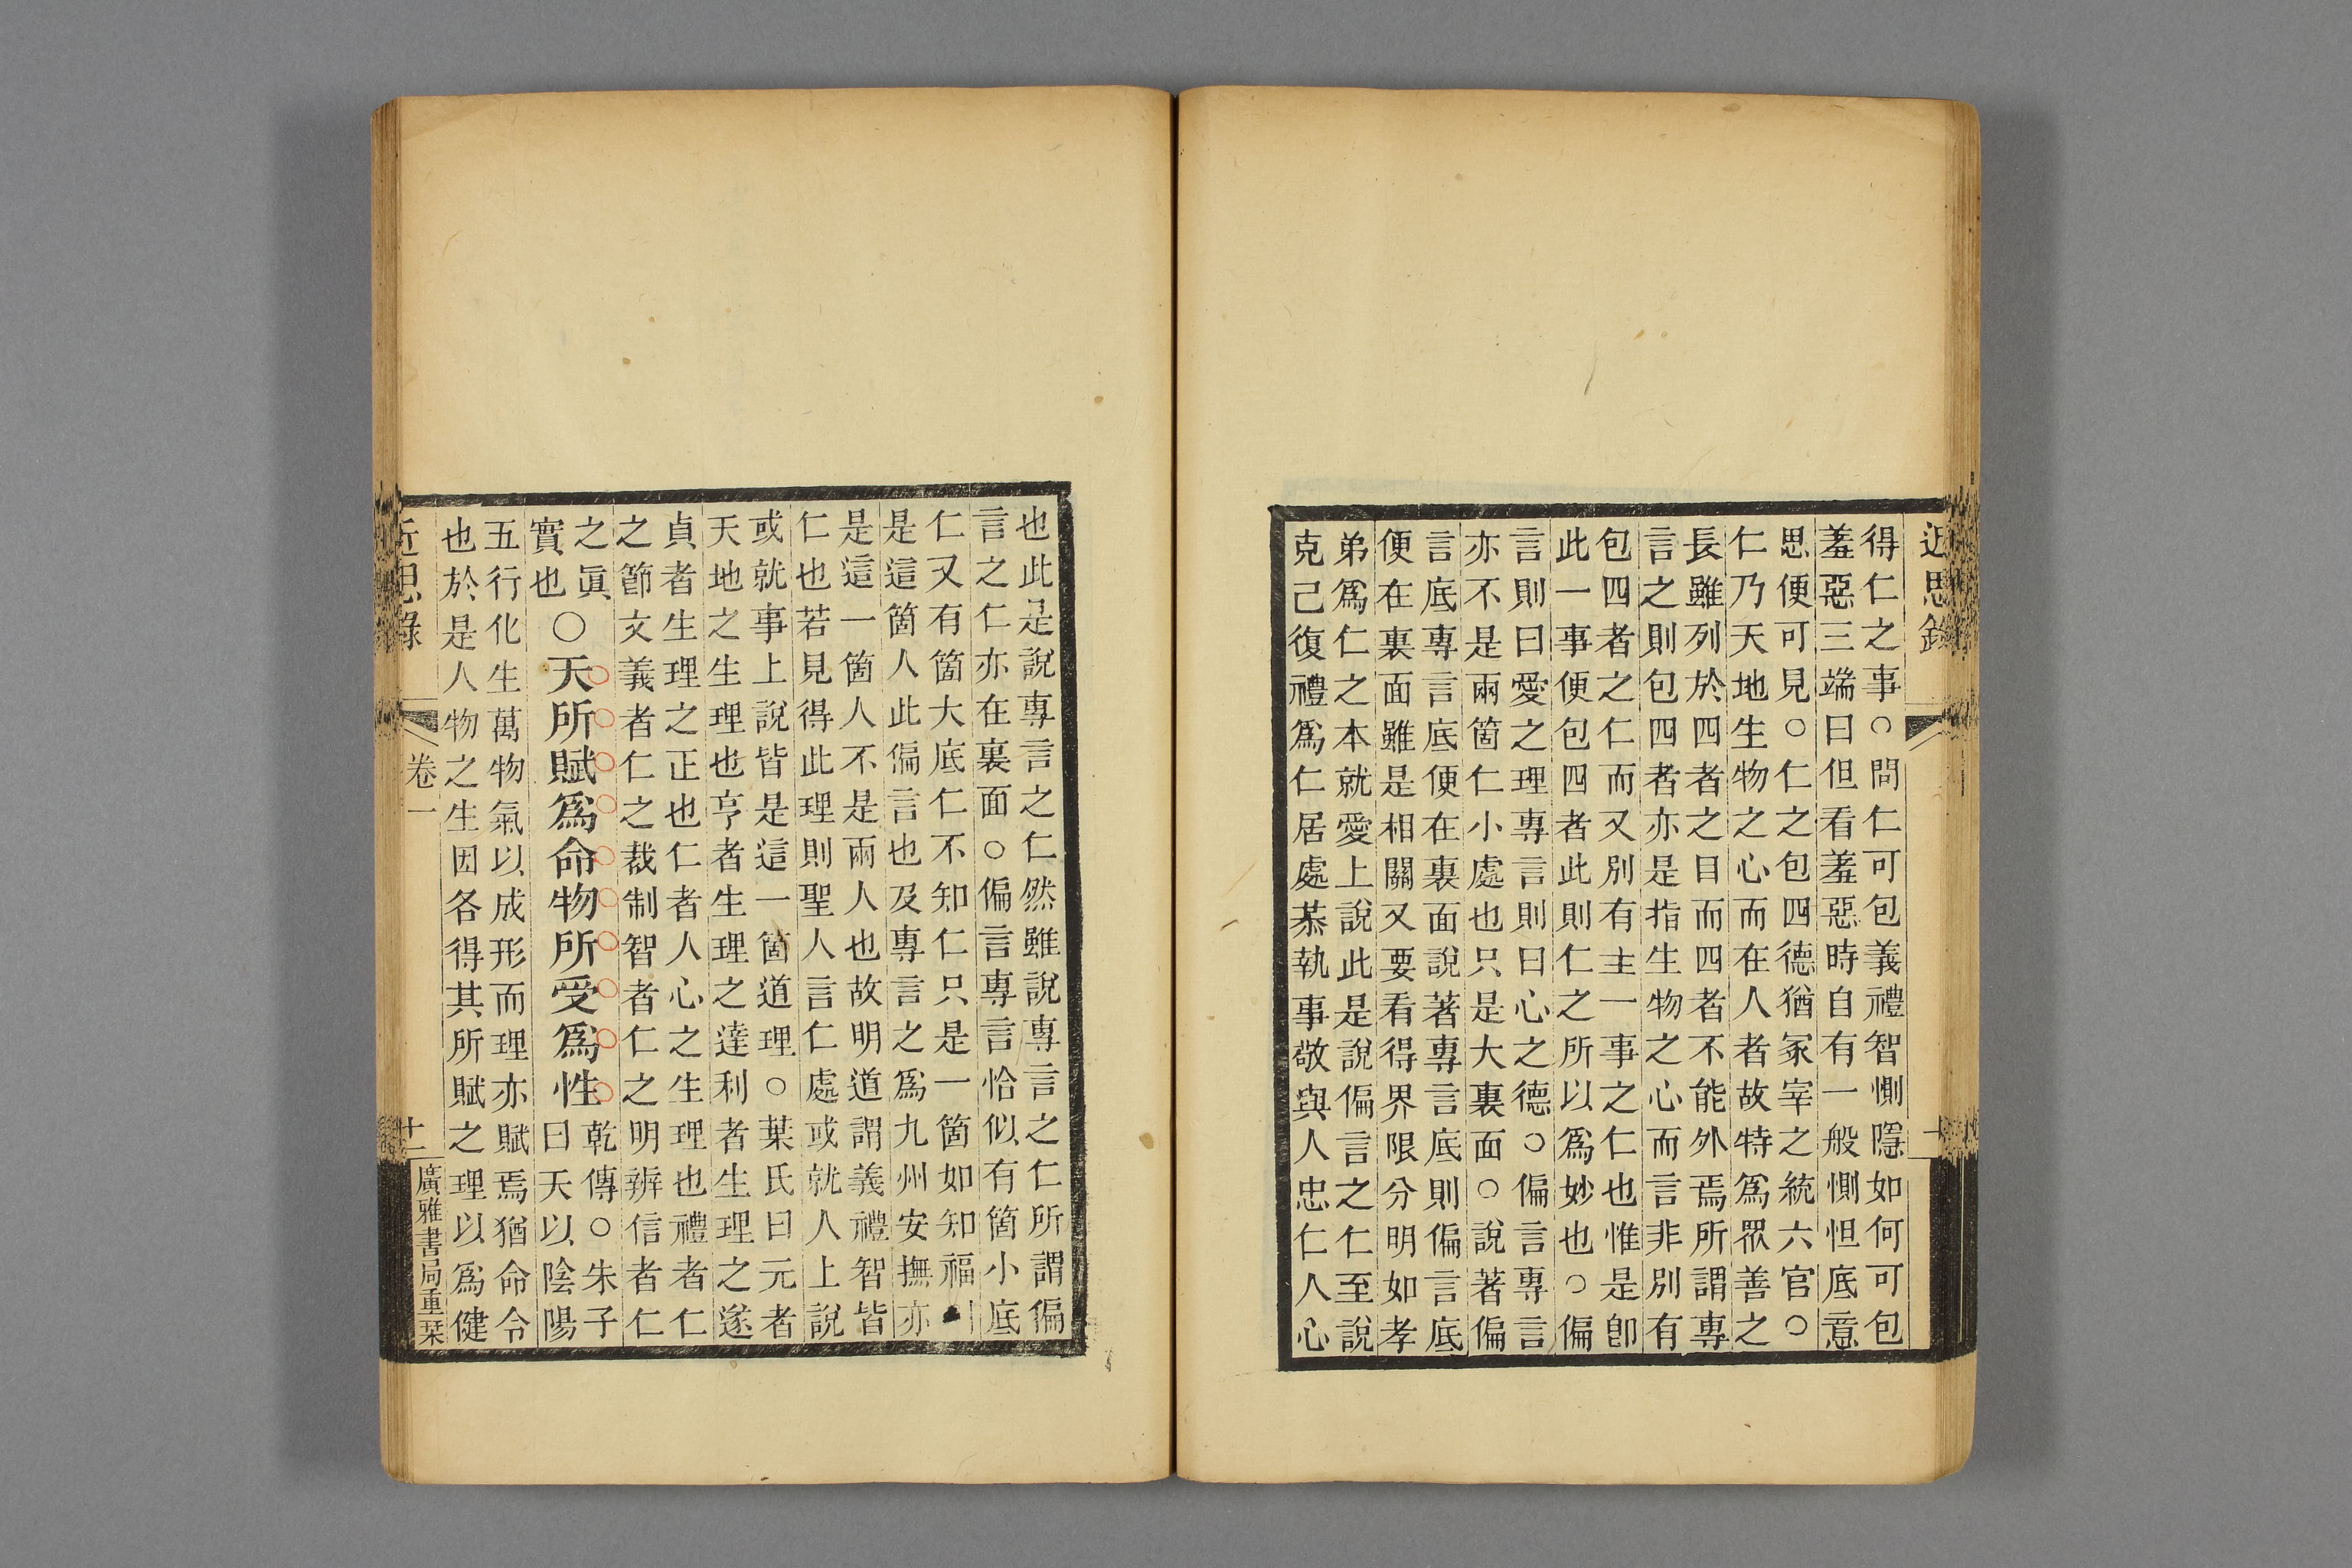 近思錄
十
得仁之事○問仁可包義禮智惻隱如何可包
羞惡三端曰但看羞惡時自有一般惻怛底意
思便可見○仁之包四德猶冢宰之統六官○
仁乃天地生物之心而在人者故特爲眾善之
長雖列於四者之目而四者不能外焉所謂專
言之則包四者亦是指生物之心而言非別有
包四者之仁而又別有主一事之仁也惟是卽
此一事便包四者此則仁之所以爲妙也○偏
言則曰愛之理專言則曰心之德○偏言專言
亦不是兩箇仁小處也只是大裏面○說著偏
言底專言底便在裏面說著專言底則偏言底
便在裏面雖是相關又要看得界限分明如孝
弟爲仁之本就愛上說此是說偏言之仁至說
克己復禮爲仁居處恭執事敬與人忠仁人心
也此是說專言之仁然雖說專言之仁所謂偏
言之仁亦在裏面○偏言專言恰似有箇小底
仁又有箇大底仁不知仁只是一箇如知福
是這箇人此偏言也及專言之爲九州安撫亦
是這一箇人不是兩人也故明道謂義禮智皆
仁也若見得此理則聖人言仁處或就人上說
或就事上說皆是這一箇道理○葉氏曰元者
天地之生理也亨者生理之達利者生理之遂
貞者生理之正也仁者人心之生理也禮者仁
之節文義者仁之裁制智者仁之明辨信者仁
之眞
實也○天所賦爲命物所受爲性
乾傳○朱子
曰天以陰陽
五行化生萬物氣以成形而理亦賦焉猶命令
也於是人物之生因各得其所賦之理以爲健
近思錄
卷一
十一
廣雅書局重栞